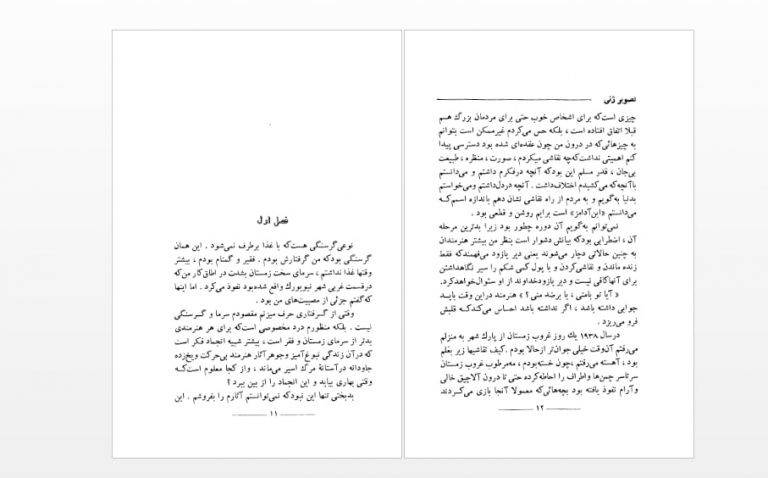 فصل اول
نوعی‌گرسنگی هست‌که با غذا برطرف نمی‌شود . این همان
گرسنگی بودکه من گرفتارش بودم . فقیر و گمنام بودم ، بیشتر
وقتها غذا نداشتم ، سرمای سخت زمستان بشدت در اطاق‌کار من‌که
درقسمت غربی شهر نیویورك واقع شده‌بود نفوذ می‌کرد . اما اینها
که‌گفتم جزئی از مصیبت‌های من بود .
وقتی از گسرفتاری حرف میزنم مقصودم سرما و گسرسنگی
نیست . بلکه منظورم درد مخصوصی است‌که برای هر هنرمندی
بدتر از سرمای زمستان و فقر است ، بیشتر شبیه انجماد فکر است
که‌درآن زندگی نبوغ‌آمیز وجوهرآثار هنرمند بی‌حرکت ویخ‌زده
جاودانه درآستانهٔ مرگ اسیر می‌ماند ، و از کجا معلوم است‌کـه
وقتی بهاری بیاید و این انجماد را از بین ببرد ؟
بدبختی تنها این نبودکه نمی‌توانستم آثارم را بفروشم . این
۱۱
تصویر ژنی
چیزی است‌که برای اشخاص خوب حتی برای مردمان بزرگ هسم
قبلا اتفاق افتاده است ، بلکه حس می‌کردم غیرممکن است بتوانم
به چیزهائی‌که در درون من چون عقده‌ای شده بود دسترسی پیدا
کنم اهمیتی نداشت‌که‌چه نقاشی میکردم ، صورت ، منظره ، طبیعت
بی‌جان ، قدر مسلم این بودکه آنچه درفکرم داشتم و می‌دانستم
باآنچه‌که می‌کشیدم اختلاف‌داشت . آنچه دردل‌داشتم ومی‌خواستم
بدنیا به‌گویم و به مردم از راه نقاشی نشان دهم باندازه اسمم‌کـه
می‌دانستم «ابن‌آدامز» است برایم روشن و قطعی بود .
نمی‌توانم به‌گویم آن دوره چطور بود زیرا بدترین مرحله
آن ، اضطرابی بودکه بیانش دشوار است بنظر من بیشتر هنرمندان
به چنین حالاتی دچار می‌شوند یعنی دیر یازود می‌فهمندکه فقط
زنده ماندن و نقاشی‌کردن و با پول کسی شکم را سیر نگاهداشتن
برای آنهاکافی نیست و دیر یازودخداوند از او سئوال‌خواهدکرد.
« آیا تو بامنی ، یا برضد منی ؟ » هنرمند دراین وقت بایـد
جوابی داشته باشد ، اگر نداشته باشد احساس می‌کندکـه قلبش
فرو می‌ریزد .
درسال ۱۹۳۸ یك روز غروب زمستان از پارك شهر به منزلم
می‌رفتم آن‌وقت خیلی جوان‌تر ازحالا بودم .کیف نقاشیها زیر بغلم
بود ، آهسته می‌رفتم ،چون خسته‌بودم ، مه‌مرطوب غروب زمستان
سرتاسر چمن‌ها واطراف را احاطه‌کرده حتی تا درون آلاچیق خالی
وآرام نفوذ یافته بود بچه‌هائی‌که معمولا آنجا بازی می‌کـردند
۱۲